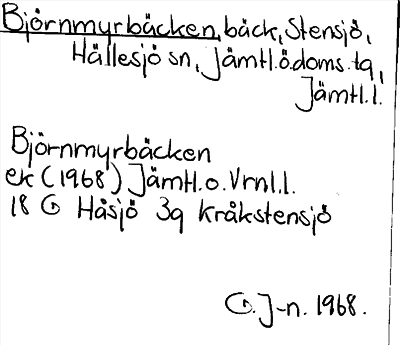 Björnmyrbäcken, bäck, Stensjö,
Hällesjö sn, Jämtl.ö.doms.tg,
Jämtl.l.
Björnmyrbäcken
ek (1968) Jämtl.o.Vrnl.l.
18 G Håsjö 3g Kråkstensjö
G. J-n. 1968.